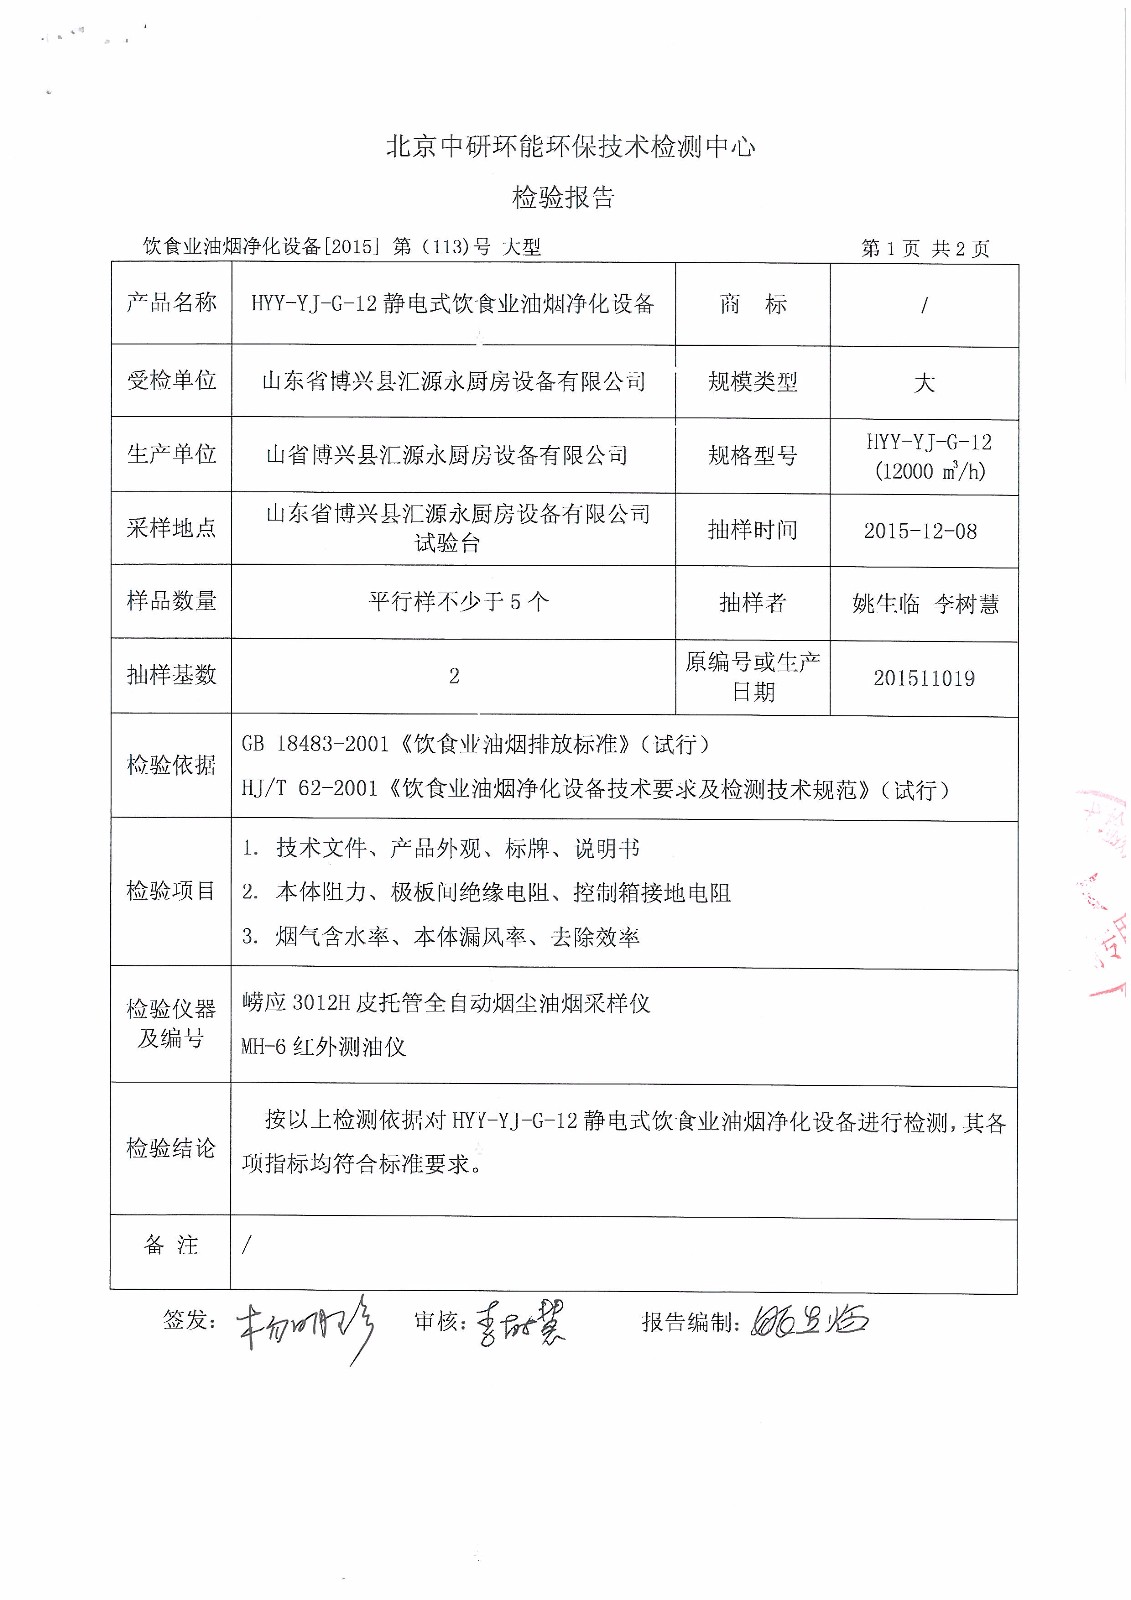 北京中研环能环保技术检测中心
检验报告
饮食业油烟净化设备[2015] 第 (113)号 大型
第 1 页 共 2 页
产品名称
HYY-YJ-G-12 静电式饮食业油烟净化设备
商 标
/
受检单位
山东省博兴县汇源永厨房设备有限公司
规模类型
大
生产单位
山省博兴县汇源永厨房设备有限公司
规格型号
HYY-YJ-G-12
(12000 m³/h)
采样地点
山东省博兴县汇源永厨房设备有限公司
试验台
抽样时间
2015-12-08
样品数量
平行样不少于 5 个
抽样者
姚生临 李树慧
抽样基数
2
原编号或生产
日期
201511019
检验依据
GB 18483-2001《饮食业油烟排放标准》（试行）
HJ/T 62-2001《饮食业油烟净化设备技术要求及检测技术规范》（试行）
检验项目
1. 技术文件、产品外观、标牌、说明书
2. 本体阻力、极板间绝缘电阻、控制箱接地电阻
3. 烟气含水率、本体漏风率、去除效率
检验仪器
及编号
崂应 3012H 皮托管全自动烟尘油烟采样仪
MH-6 红外测油仪
检验结论
按以上检测依据对 HYY-YJ-G-12 静电式饮食业油烟净化设备进行检测,其各
项指标均符合标准要求。
备 注
/
签发: 审核: 李树慧 报告编制: 姚生临